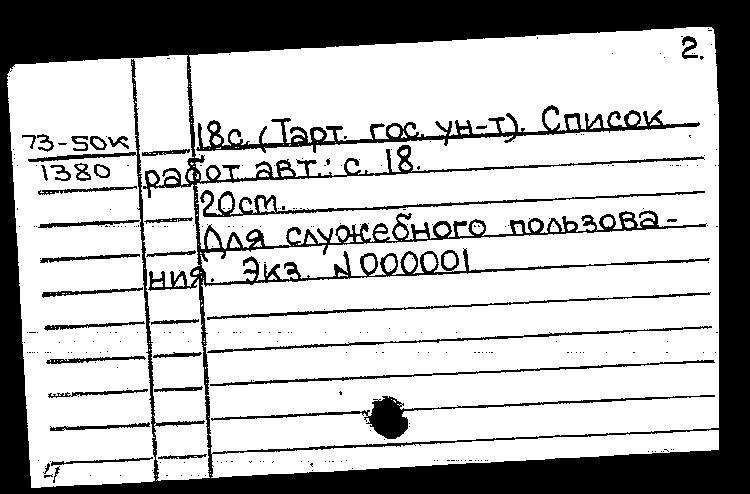 2.
18с. (Тарт. гос. ун-т). Список
73-50к
1380
работ авт.: с. 18.
20см.
Для служебного пользова-
ния. Экз. N000001